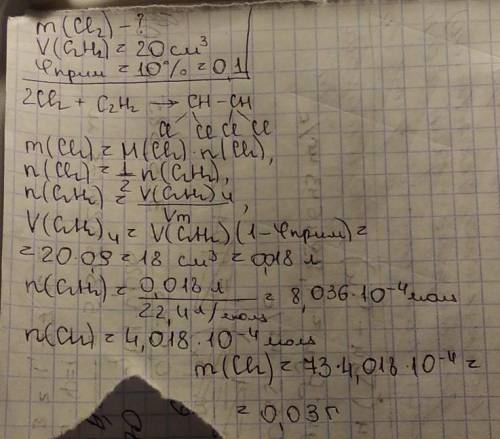 m(Cl₂) - ?
V(C₂H₂) = 20 см³
φприм = 10% = 0,1
2Cl₂ + C₂H₂ → CH - CH
Cl Cl Cl Cl
m(Cl₂) = M(Cl₂) · n(Cl₂),
n(Cl₂) = 1/2 n(C₂H₂),
n(C₂H₂) = V(C₂H₂)ч / Vm,
V(C₂H₂)ч = V(C₂H₂)(1 - φприм) =
= 20 · 0,9 = 18 см³ = 0,018 л
n(C₂H₂) = 0,018 л / 22,4 л/моль = 8,036 · 10⁻⁴ моль
n(Cl₂) = 4,018 · 10⁻⁴ моль
m(Cl₂) = 73 · 4,018 · 10⁻⁴ =
= 0,03 г